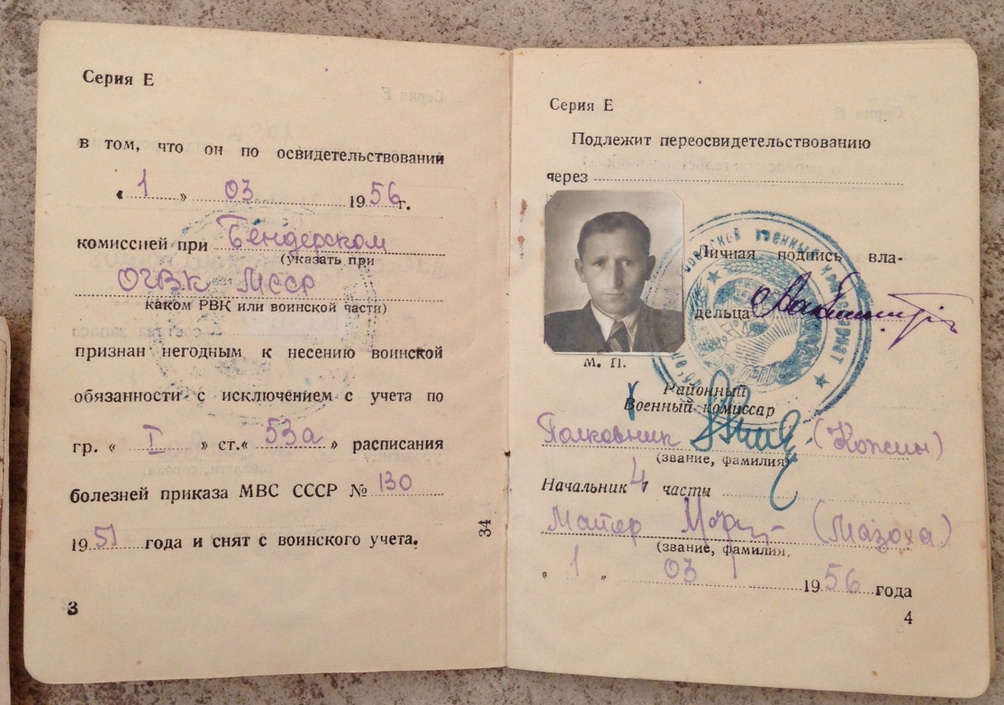 Серия Е
в том, что он по освидетельствовании
« 1 » 03 1956г.
комиссией при Бендерском
(указать при
ОГВК МССР
каком РВК или воинской части)
признан негодным к несению воинской
обязанности с исключением с учета по
гр. « I » ст. « 53а » расписания
болезней приказа МВС СССР № 130
1951 года и снят с воинского учета.
3
34
Серия Е
Подлежит переосвидетельствованию
через
Личная подпись вла-
дельца
М. П.
Районный
Военный комиссар
Полковник (Кожин)
(звание, фамилия)
Начальник 4 части
Майор (Мазоха)
(звание, фамилия,
« 1 » 03 1956 года
4